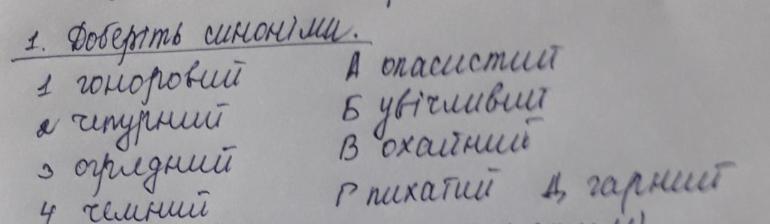 1. Доберіть синоніми.
1 гоноровий А опасистий
2 чепурний Б увічливий
3 огрядний В охайний
4 чемний Г пихатий Д гарний